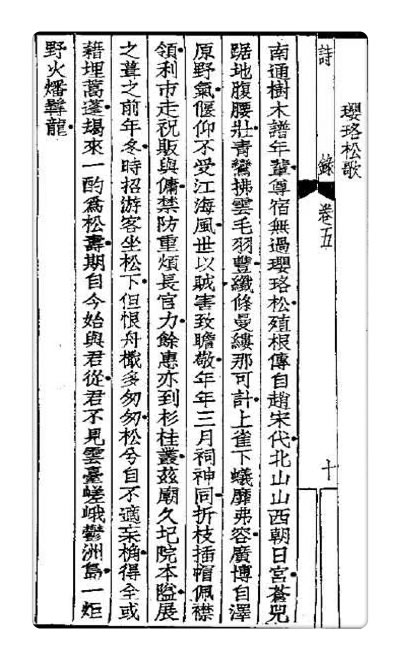 瓔珞松歌
詩錄 卷五 十
南通樹木譜年輩尊宿無過瓔珞松殖根傳自趙宋代北山山西朝日宮蒼兕
踞地腹腰壯青鸞拂雲毛羽豐纖條曼縷那可計上雀下蟻靡弗容廣博自澤
原野氣偃仰不受江海風世以賊害致瞻敬年年三月祠神同折枝插帽佩襟
領利市走祝販與傭禁防重煩長官力餘惠亦到杉桂叢茲廟久圮院本隘展
之葺之前年冬時招游客坐松下但恨舟檝多匆匆松兮自不適桷得全或
藉埋蒿蓬朅來一酌為松壽期自今始與君從君不見雲臺嵯峨鬱洲島一炬
野火燔龍